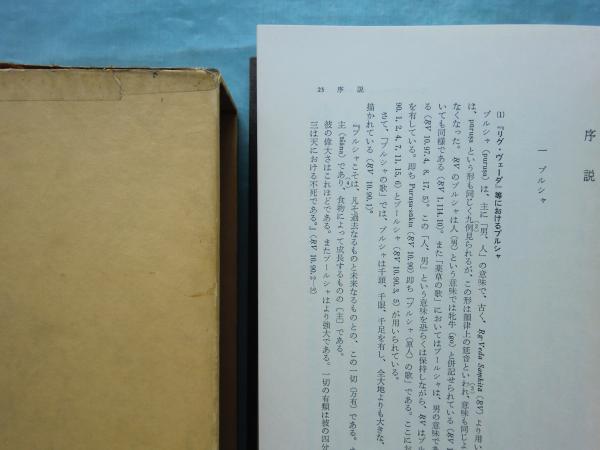 25 序説
序説
一 プルシャ
(1) 『リグ・ヴェーダ』等におけるプルシャ
プルシャ (puruṣa) は、主に「男、人」の意味で、古く、Ṛg-Veda Saṃhitā (RV) より用い
は、pūruṣa という形も同じく九例見られるが、この形は韻律上の延音といわれ、意味も同じよ
なくなった。RV のプルシャは人（男）という意味では牝牛 (go) と併記せられている (RV 1
いても同様である (RV 1.114.10)。また「薬草の歌」においてはプールシャは、男の意味であ
る (RV 10.97.4, 8, 17, 5)。この「人、男」という意味を恐らくは保持しながら、RV はプル
を有している。即ち Puruṣa-sūkta (RV 10.90) 即ち「プルシャ（原人）の歌」である。ここにお
90.1, 2, 4, 7, 11, 15, 6) とプールシャ (RV 10.90.3, 5) が用いられている。
さて、「プルシャの歌」では、プルシャは千頭、千眼、千足を有し、全大地よりも大きな、
描かれている (RV 10.90.1)。
『プルシャこそは、凡そ過去なるものと未来なるものとの、この一切（万有）である。
主 (īśāna) であり、食物によって成長するものの（主）である。
彼の偉大さはこれほどである。またプールシャはより強大である。一切の有類は彼の四分
三は天における不死である。』(RV 10.90.2-3)